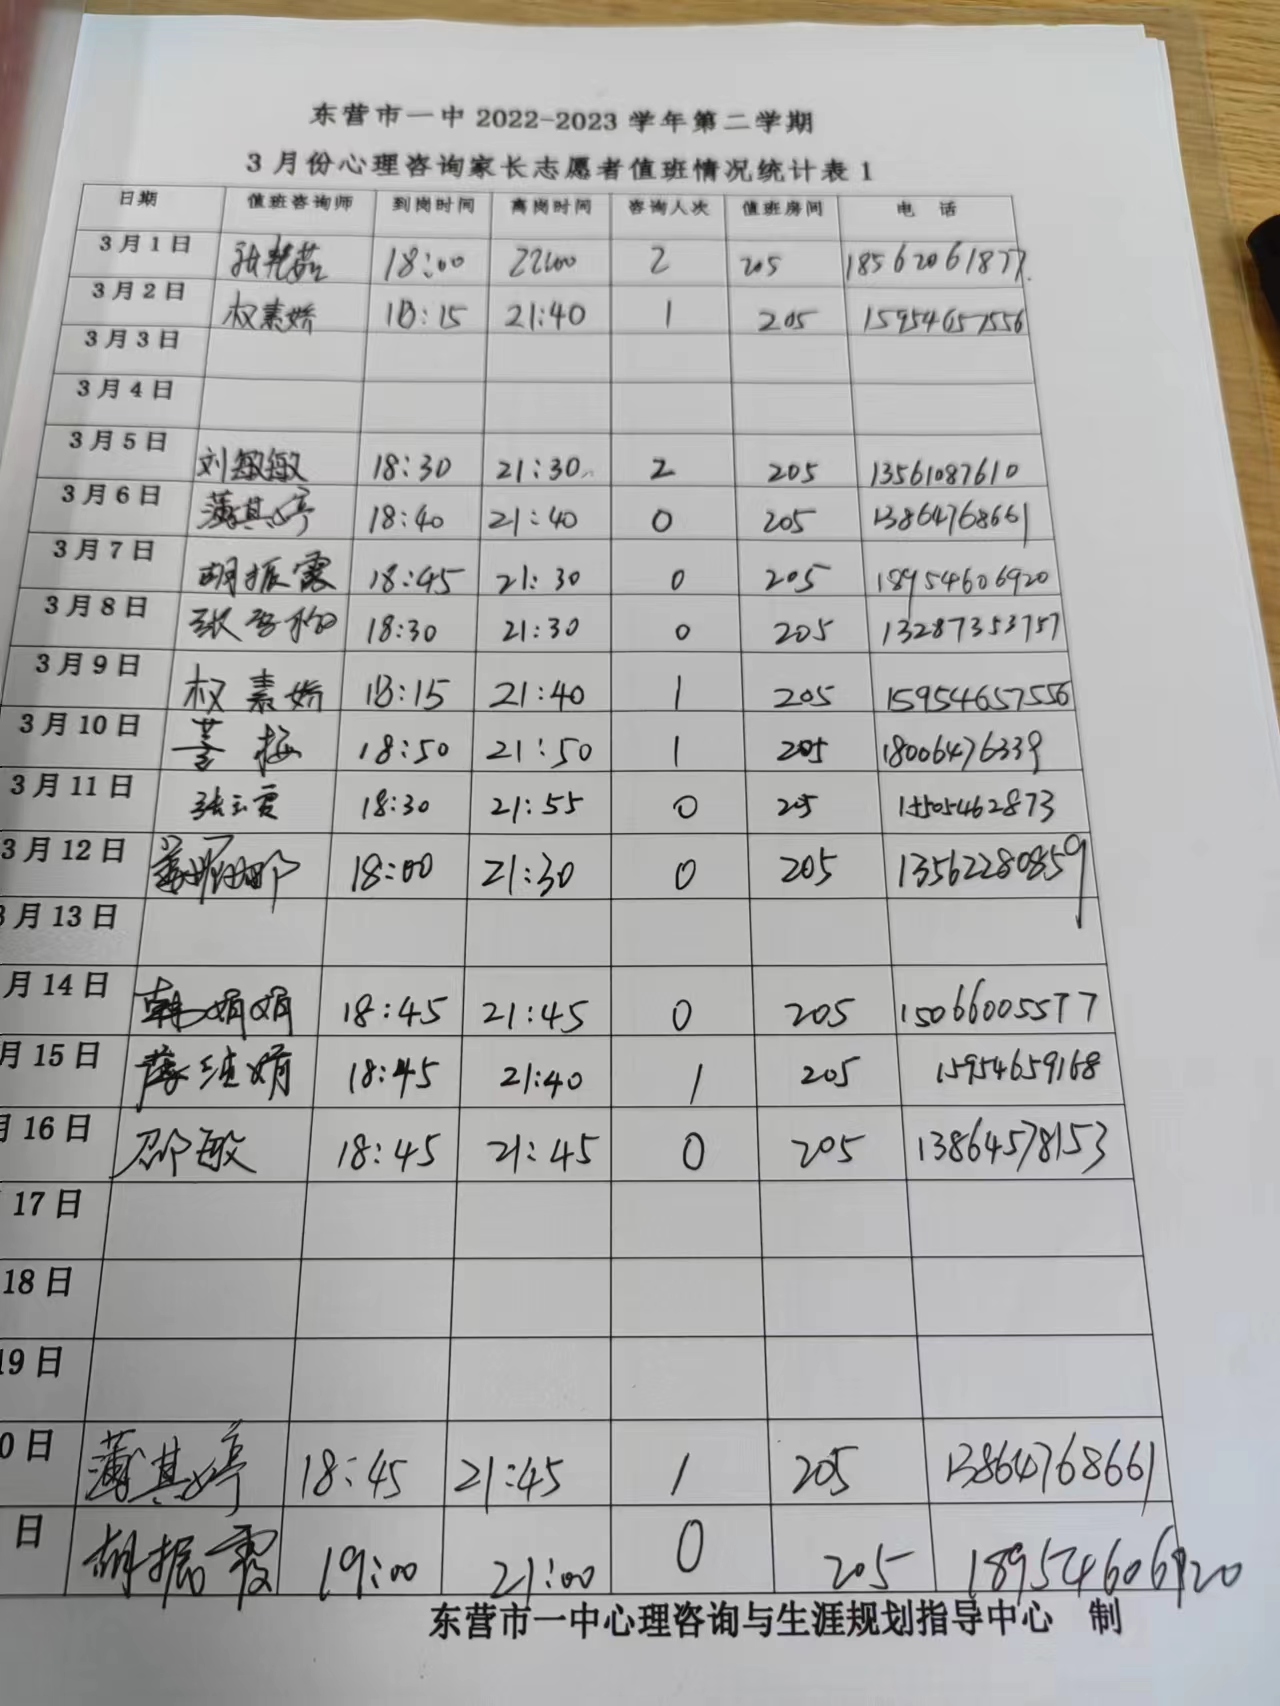 东营市一中 2022-2023 学年第二学期
3 月份心理咨询家长志愿者值班情况统计表 1
日期 值班咨询师 到岗时间 离岗时间 咨询人次 值班房间 电 话
3 月 1 日 18:00 22:00 2 205 18562061877
3 月 2 日 权素娇 18:15 21:40 1 205 15954657556
3 月 3 日
3 月 4 日
3 月 5 日 刘敏敏 18:30 21:30 2 205 13561087610
3 月 6 日 薄其婷 18:40 21:40 0 205 13864768661
3 月 7 日 胡振霞 18:45 21:30 0 205 18954606920
3 月 8 日 张 18:30 21:30 0 205 13287353757
3 月 9 日 权素娇 18:15 21:40 1 205 15954657556
3 月 10 日 梅 18:50 21:50 1 205 18006476339
3 月 11 日 张玉霞 18:30 21:55 0 205 15505462873
3 月 12 日 18:00 21:30 0 205 13562280859
3 月 13 日
月 14 日 韩娟娟 18:45 21:45 0 205 15066005577
月 15 日 娟 18:45 21:40 1 205 15954659168
月 16 日 邵敏 18:45 21:45 0 205 13864578153
17 日
18 日
19 日
0 日 薄其婷 18:45 21:45 1 205 13864768661
日 胡振霞 19:00 21:00 0 205 18954606920
东营市一中心理咨询与生涯规划指导中心 制